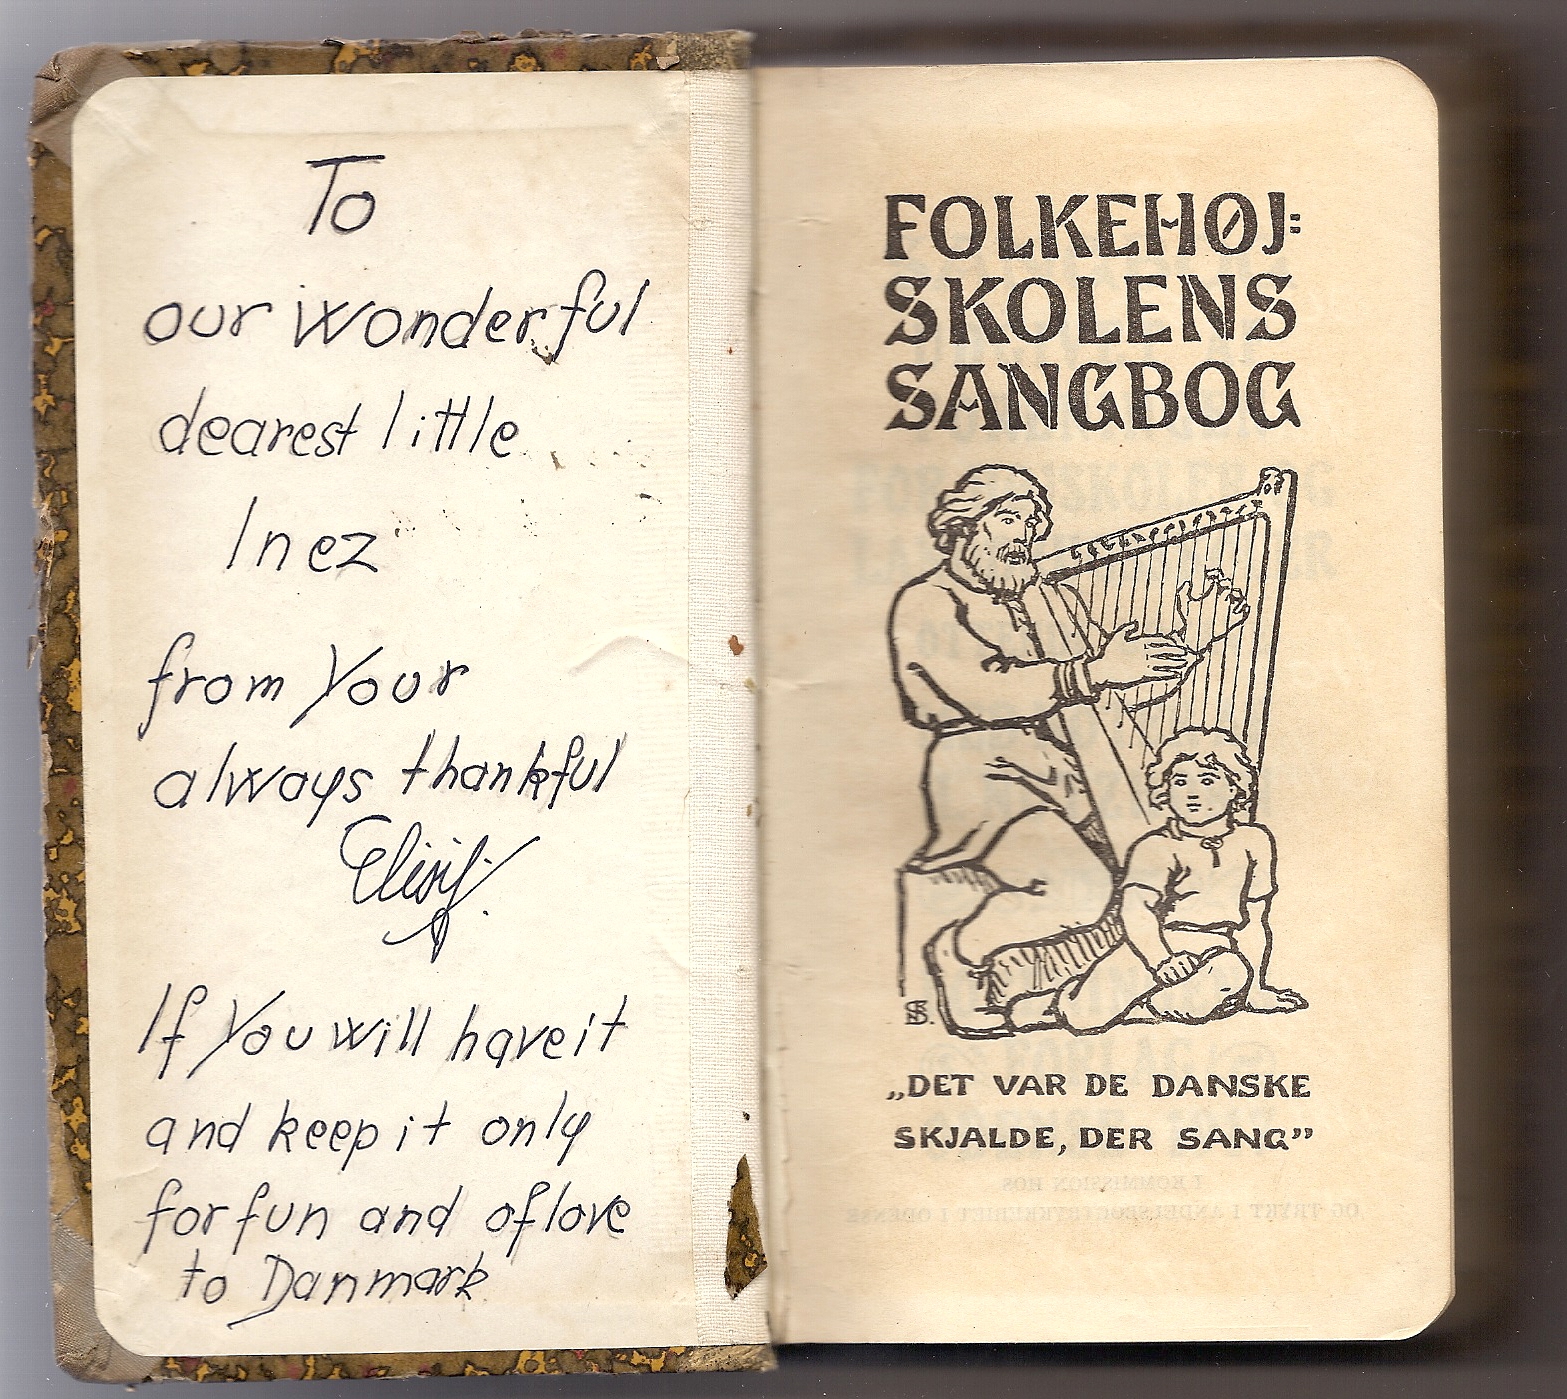 To
our wonderful
dearest little
Inez
from Your
always thankful
If You will have it
and keep it only
for fun and of love
to Danmark
FOLKEHØJ=
SKOLENS
SANGBOG
„DET VAR DE DANSKE
SKJALDE, DER SANG”
I KOMMISSION HOS
OG TRYKT I ANDELSBOGTRYKKERIET I ODENSE